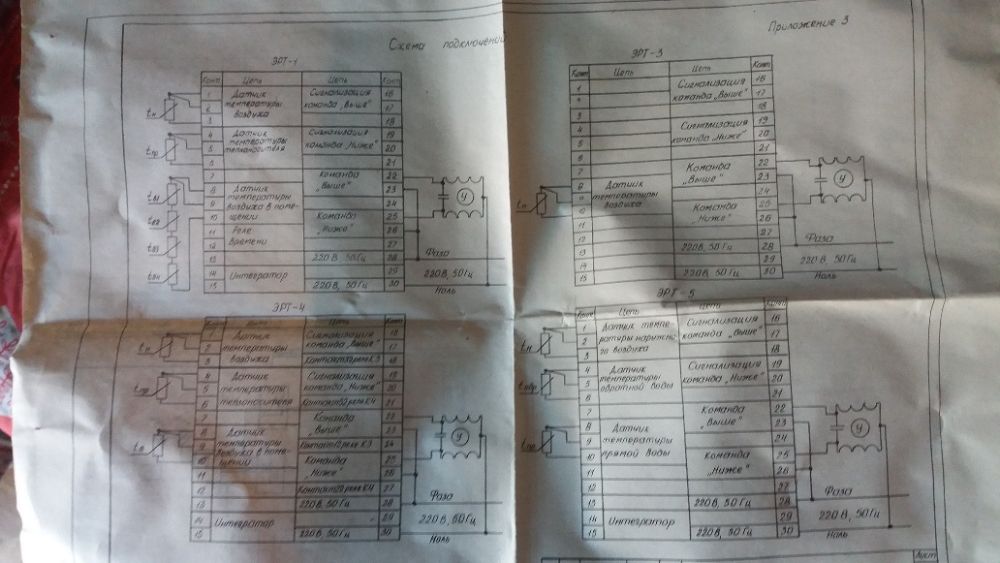 Схема подключений
Приложение 3
ЭРТ-1
Конт Цепь Цепь Конт
1 Датчик Сигнализация 16
2 температуры команда „Выше" 17
3 воздуха 18
tн
4 Датчик Сигнализация 19
5 температуры команда „Ниже" 20
6 теплоносителя 21
tпр
7 Команда 22
8 Датчик „Выше" 23
9 температуры 24
10 воздуха в поме- Команда 25
щении
11 Реле „Ниже" 26
12 времени 27
13 220 В, 50 Гц 28
14 Интегратор 29
15 220 В, 50 Гц 30
tв1
tв2
У
Фаза
220 В, 50 Гц
Ноль
ЭРТ-3
Конт Цепь Цепь Конт
1 Сигнализация 16
2 команда „Выше" 17
3 18
4 Сигнализация 19
5 команда „Ниже" 20
6 21
7 Команда 22
8 Датчик „Выше" 23
9 температуры 24
10 воздуха Команда 25
11 „Ниже" 26
12 27
13 220 В, 50 Гц 28
14 29
15 220 В, 50 Гц 30
У
Фаза
220 В, 50 Гц
Ноль
ЭРТ-4
Конт Цепь Цепь Конт
1 Датчик Сигнализация 16
2 температуры команда „Выше" 17
3 воздуха Контакт реле К3 18
tн
4 Датчик Сигнализация 19
5 температуры команда „Ниже" 20
6 теплоносителя Контакт реле К4 21
7 Команда 22
8 Датчик „Выше" 23
9 температуры Контакт реле К3 24
10 воздуха в поме- Команда 25
щении
11 „Ниже" 26
12 Контакт реле К4 27
13 220 В, 50 Гц 28
14 Интегратор 29
15 220 В, 50 Гц 30
tв
У
Фаза
220 В, 50 Гц
Ноль
ЭРТ-5
Конт Цепь Цепь Конт
1 Датчик темпе- Сигнализация 16
2 ратуры наружно- команда „Выше" 17
3 го воздуха 18
tн
4 Датчик Сигнализация 19
5 температуры команда „Ниже" 20
6 обратной воды 21
tобр
7 Команда 22
8 Датчик „Выше" 23
9 температуры 24
10 прямой воды Команда 25
11 „Ниже" 26
12 27
13 220 В, 50 Гц 28
14 Интегратор 29
15 220 В, 50 Гц 30
У
Фаза
220 В, 50 Гц
Ноль
Лист